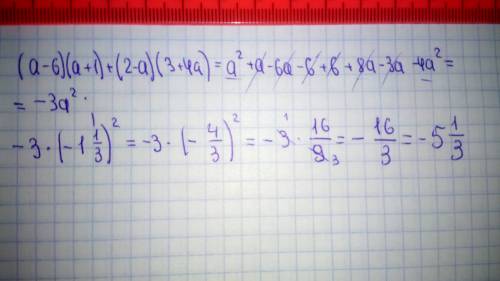 (a-6)(a+1)+(2-a)(3+4a)=a²+a-6a-6+6+8a-3a-4a²=
=-3a².
-3·(-1 1/3)²=-3·(-4/3)²=-3·16/9=-16/3=-5 1/3